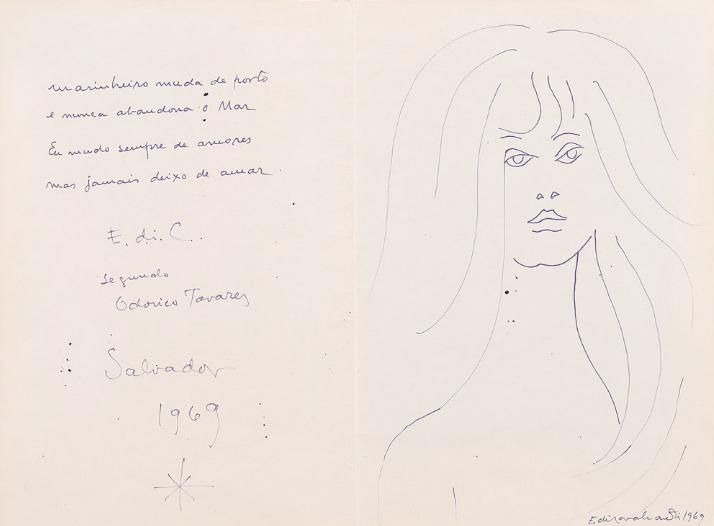 marinheiro muda de porto
e nunca abandona o Mar
Eu mudo sempre de amores
mas jamais deixo de amar.
E. di. C..
segundo
Odorico Tavares
Salvador
1969
Edicavalcanti/1969